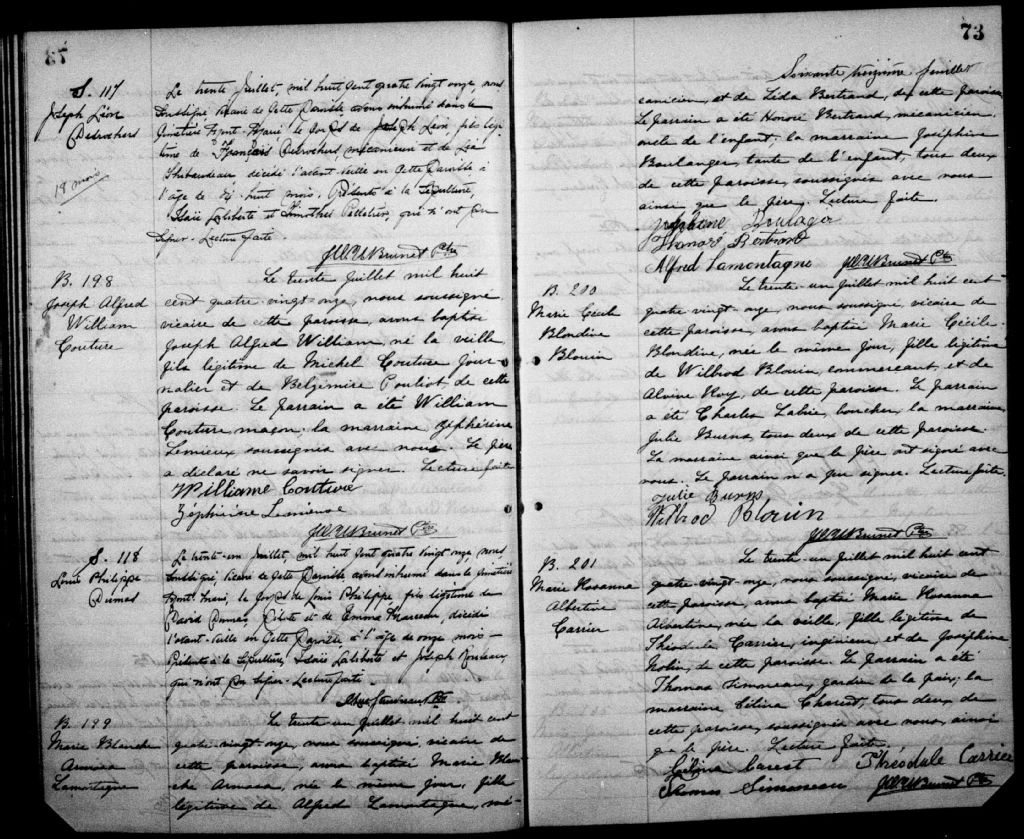 S. 117
Joseph Léon
Desrochers
18 mois
Le trente Juillet, mil huit Cent quatre vingt onze, nous
Soussigné, Vicaire de Cette Paroisse avons inhumé dans le
Cimetière Mont-Marie le Corps de Joseph Léon, fils légi
time de François Desrochers, mécanicien et de Léa
Thibaudeau décédé l'avant-veille en Cette Paroisse à
l'age de huit mois, Présents à la Sépulture,
Isaïe Laliberté et Timothée Pelletier, qui n'ont pu
Signer. Lecture faite.
Brunet Ptre
B. 198
Joseph Alfred
William
Couture
Le trente Juillet mil huit
cent quatre-vingt-onze, nous soussigné
vicaire de cette paroisse, avons baptisé
Joseph Alfred William, né la veille
fils légitime de Michel Couture jour-
nalier et de Belzémire Pouliot de cette
paroisse. Le parrain a été William
Couture maçon, la marraine Zéphérine
Lemieux soussignés avec nous. Le père
a déclaré ne savoir signer. Lecture faite
Williame Couture
Zéphirine Lemieux
Brunet Ptre
S. 118
Louis Philippe
Dumas
Le trente-un Juillet, mil huit Cent quatre vingt onze, nous
Soussigné, Vicaire de Cette Paroisse avons inhumé dans le Cimetière
Mont-Marie, le Corps de Louis Philippe fils légitime de
David Dumas, Pilote et de Emma décédé
l'avant-veille en Cette Paroisse à l'age de onze mois -
Présents à la Sépulture, Isaïe Laliberté et Joseph Rousseau
qui n'ont pu Signer - Lecture faite.
Ptre
B. 199
Marie Blanche
Amasa
Lamontagne
Le trente un Juillet mil huit cent
quatre-vingt-onze, nous soussigné, vicaire de
cette paroisse, avons baptisé Marie Blan
che Amasa, née le même jour, fille
légitime de Alfred Lamontagne, mé-
73
Soixante treizième feuillet
canicien, et de Lida Bertrand, de cette paroisse
Le parrain a été Honoré Bertrand, mécanicien,
oncle de l'enfant; la marraine Joséphine
Boulanger, tante de l'enfant, tous deux
de cette paroisse, soussignés avec nous
ainsi que le père. Lecture faite.
Josephine Boulager
Honoré Bertrand
Alfred Lamontagne Brunet Ptre
B. 200
Marie Cécile
Blondine
Blouin
Le trente-un Juillet mil huit cent
quatre vingt-onze, nous soussigné vicaire de
cette paroisse, avons baptisé Marie Cécile-
Blondine, née le même jour, fille légitime
de Wilbrod Blouin, commerçant, et de
Alvine Roy, de cette paroisse. Le parrain
a été Charles Labrie, boucher, la marraine,
Julie Burns, tous deux de cette paroisse.
La marraine ainsi que le père ont signé avec
nous. Le parrain n'a pu signer. Lecture faite.
Julie Burns
Wilbrod Blouin
Brunet Ptre
B. 201
Marie Hosanna
Albertine
Carrier
Le trente-un Juillet mil huit cent
quatre-vingt-onze, nous soussigné, vicaire de
cette paroisse, avons baptisé Marie Hosanna
Albertine, née la veille, fille légitime de
Théodule Carrier, ingénieur, et de Joséphine
Nolin, de cette paroisse. Le parrain a été
Thomas Simoneau, gardien de la paix; la
marraine Célina Charest, tous deux de
cette paroisse, soussignés avec nous, ainsi
que le père. Lecture faite.
Célina Carest Théodule Carrier
Thomas Simoneau Brunet Ptre